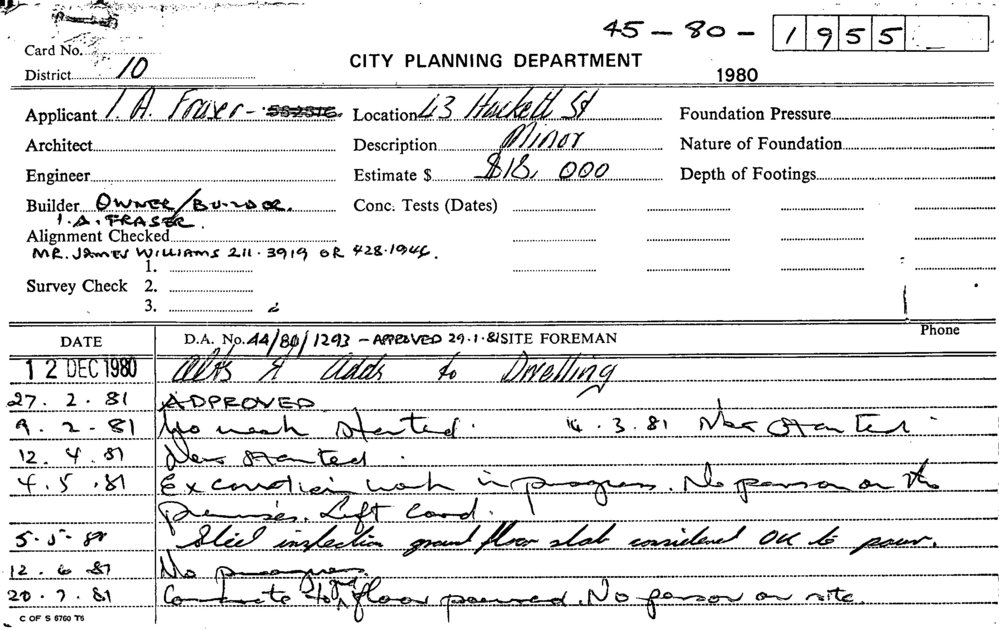 45 - 80 - 1955
Card No.
District 10
CITY PLANNING DEPARTMENT
1980
Applicant I. A. Fraser - Location 43 Hackett St Foundation Pressure
Architect Description Minor Nature of Foundation
Engineer Estimate $ $18,000 Depth of Footings
Builder OWNER/BUILDER. Conc. Tests (Dates)
I. A. FRASER.
Alignment Checked
MR. JAMES WILLIAMS 211.3919 OR 428.1946.
1.
Survey Check 2.
3.
DATE D.A. No. 44/80/1293 - APPROVED 29.1.81 SITE FOREMAN Phone
12 DEC 1980 Alts & Adds to Dwelling
27. 2. 81 APPROVED
9. 2. 81 No work started. 14. 3. 81 Not started.
12. 4. 81 Not started.
4. 5. 81 Excavation work in progress. No person on the
premises. Left card.
5. 5. 81 Steel inspection ground floor slab considered OK to pour.
12. 6 81 No progress.
20. 7. 81 Concrete to floor poured. No person on site.
C OF S 6760 T5